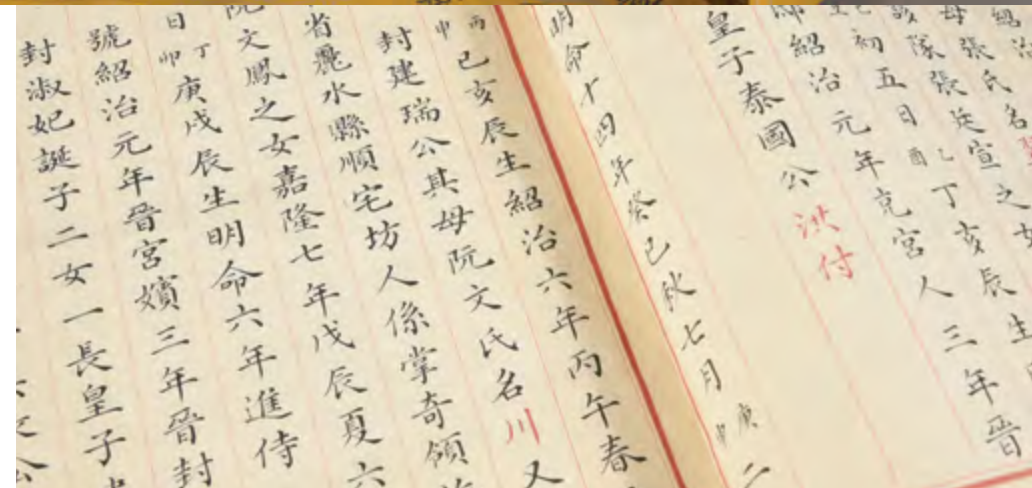 紹治
母張氏名
該隊張廷宣之女
初五日乙酉丁亥辰生
邸紹治元年充宮人三年晉
皇子泰國公洪付
明命十四年癸巳秋七月庚申二
丙申己亥辰生紹治六年丙午春
封建瑞公其母阮文氏名川又
省水縣順宅坊人係掌奇領
阮文鳳之女嘉隆七年戊辰夏六
日丁卯庚戌辰生明命六年進侍
號紹治元年晉宮嬪三年晉封
封淑妃誕子二女一長皇子